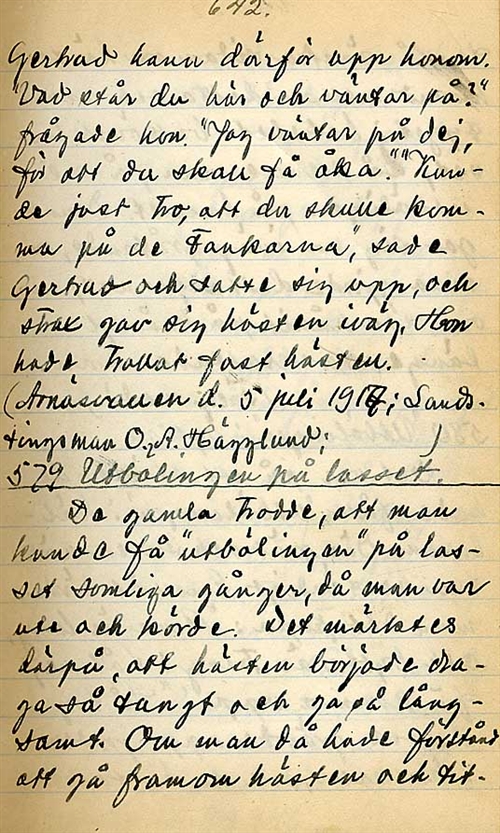 642.
Gertrud hann därför upp honom.
"Vad står du här och väntar på?"
frågade hon. "Jag väntar på dej,
för att du skall få åka." "Kun-
de just tro, att du skulle kom-
ma på de tankarna", sade
Gertrud och satte sig upp, och
strax gav sig hästen iväg. Hon
hade trollat fast hästen.
(Arnäsvallen d. 5 juli 1917; Lands-
tingsman O. A. Hägglund; )
579 Utbölingen på lasset.
De gamla trodde, att man
kunde få "utbölingen" på las-
set somliga gånger, då man var
ute och körde. Det märktes
därpå, att hästen började dra-
ga så tungt och ga så lång-
samt. Om man då hade förstånd
att gå framom hästen och tit-